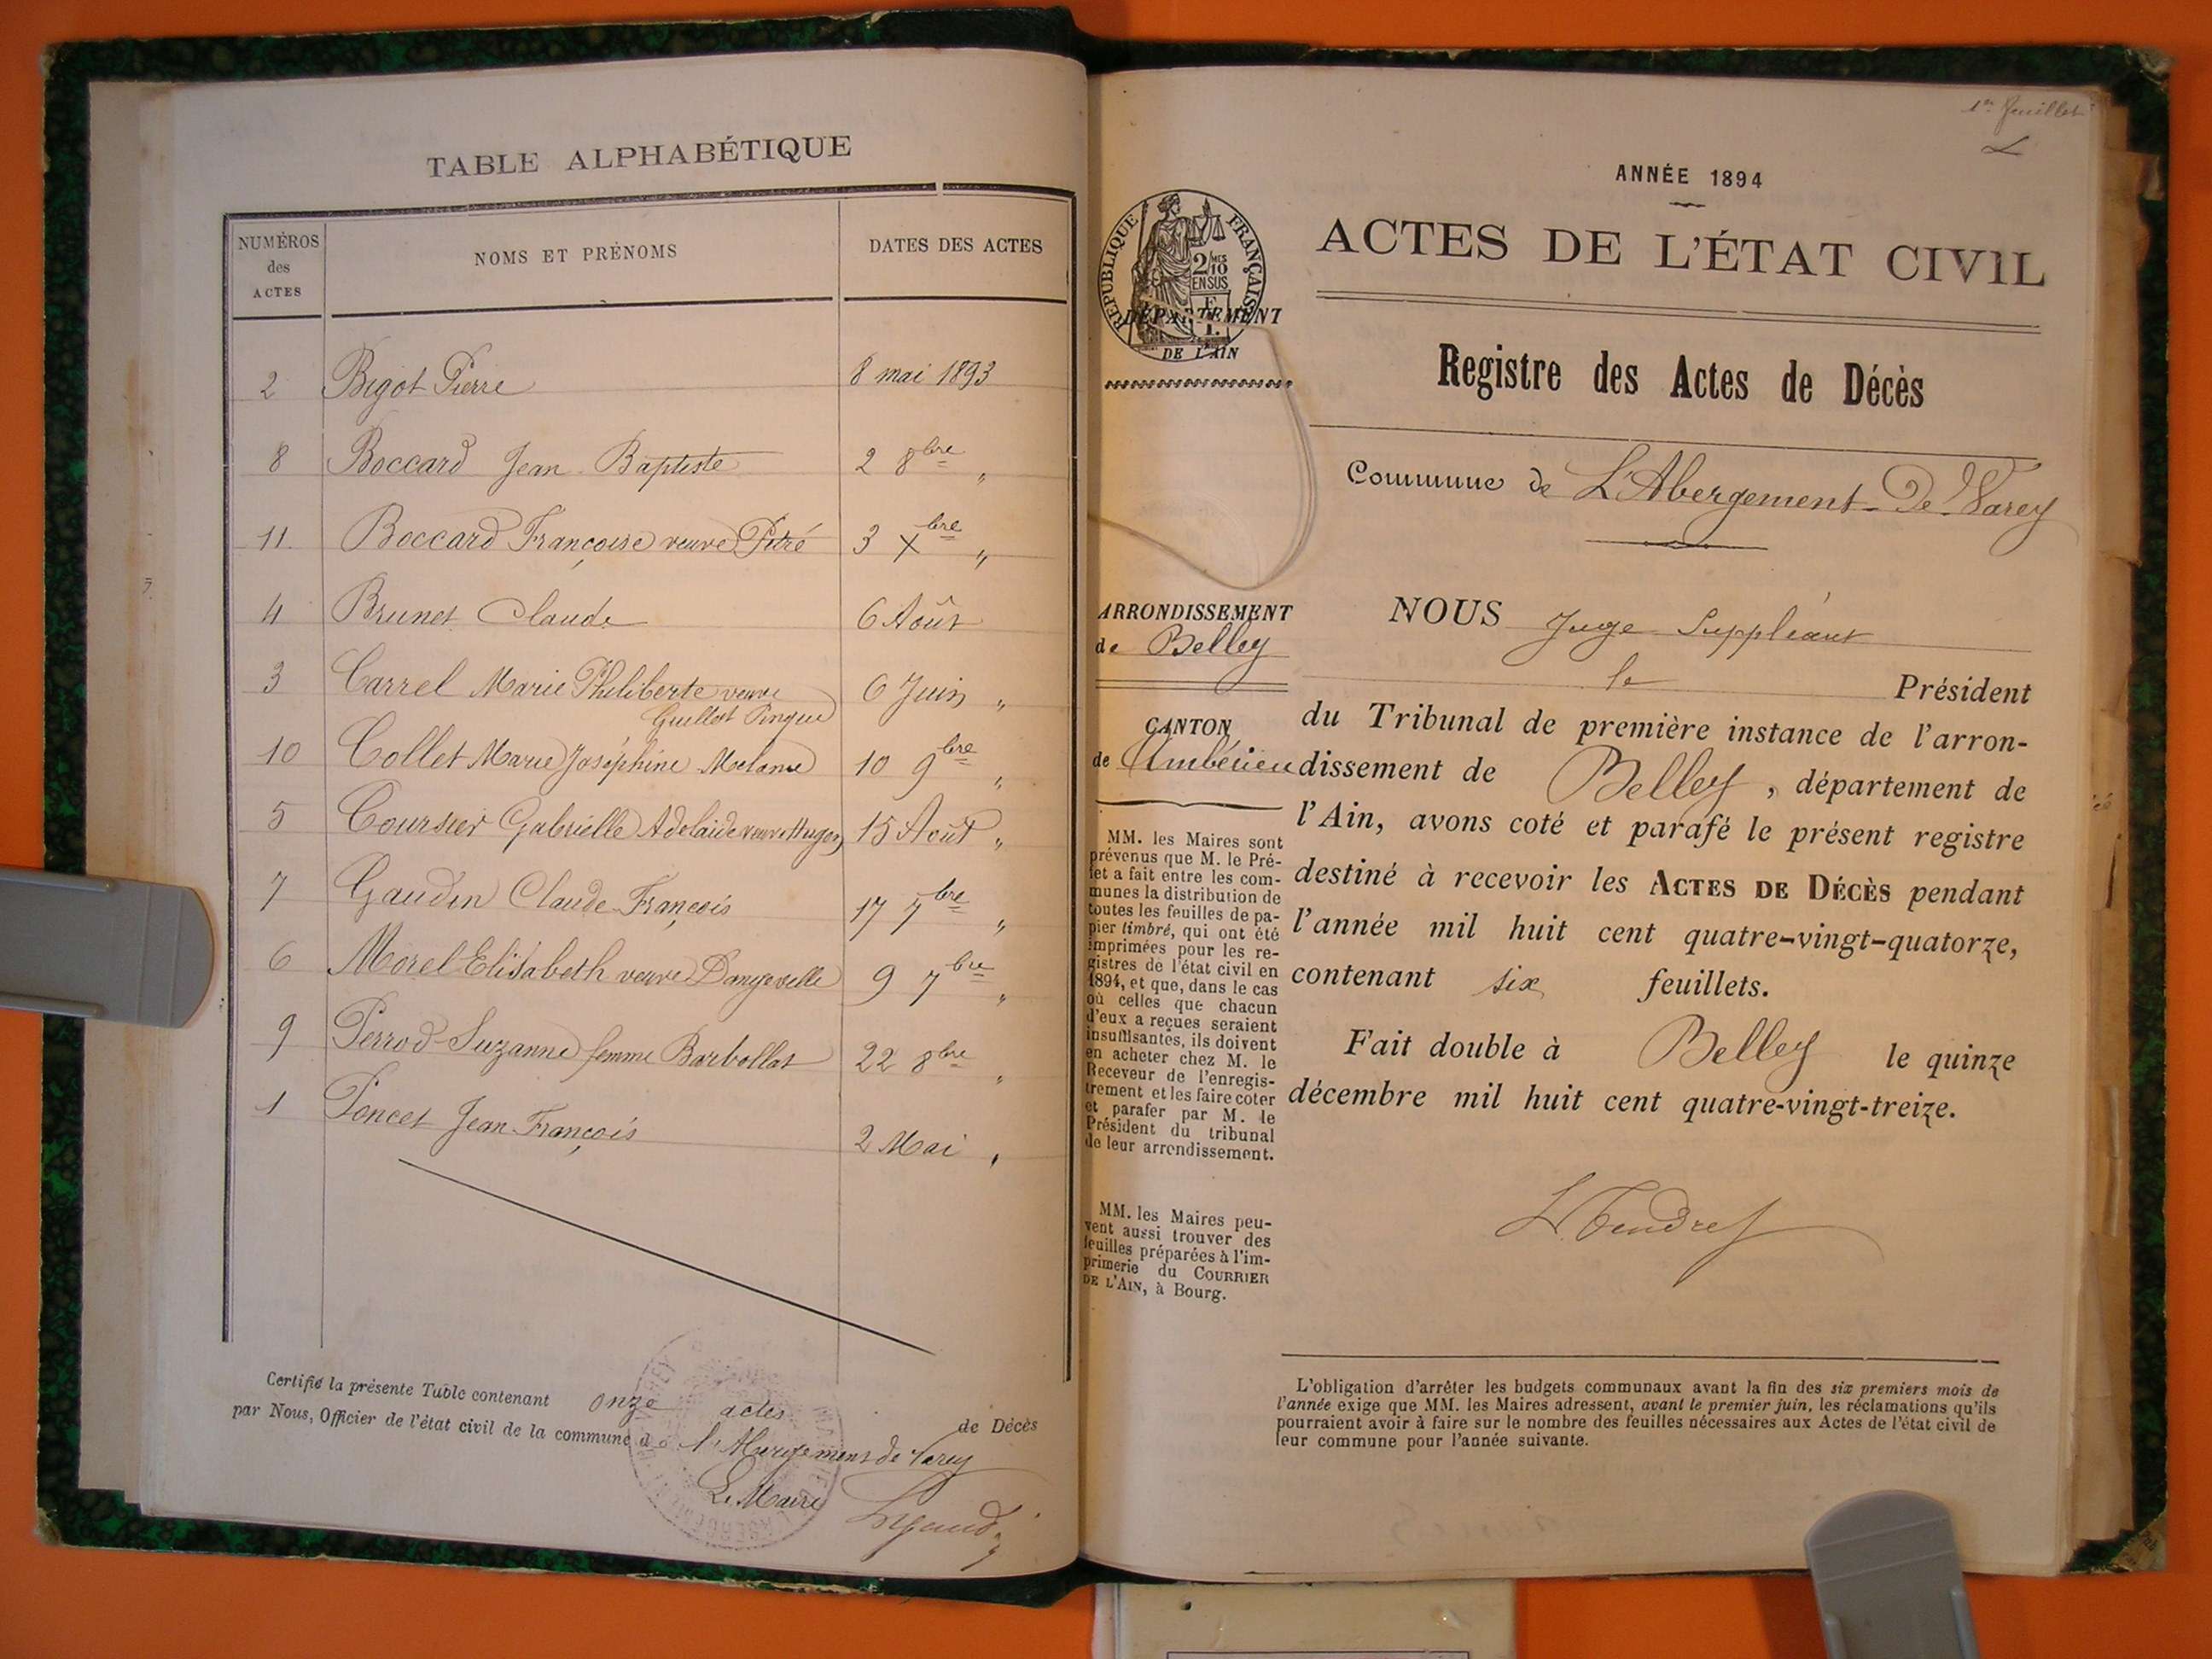 TABLE ALPHABÉTIQUE
NUMÉROS
des
ACTES
NOMS ET PRÉNOMS
DATES DES ACTES
2 Bigot Pierre 8 mai 1893
8 Boccard Jean Baptiste 2 8bre "
11 Boccard Françoise veuve Pitré 3 Xbre "
4 Brunet Claude 6 Août
3 Carrel Marie Philiberte veuve 6 Juin "
Guillot
10 Collet Marie Joséphine Melanie 10 9bre "
5 Coursier Gabrielle Adelaide veuve Hugon 15 Août "
7 Gaudin Claude François 17 7bre "
6 Morel Elisabeth veuve 9 7bre "
9 Perrod Suzanne femme Barbollat 22 8bre "
1 Poncet Jean François 2 Mai "
Certifié la présente Table contenant onze actes de Décès
par Nous, Officier de l'état civil de la commune de l'Abergement de Varey
Le Maire
1er feuillet
ANNÉE 1894
ACTES DE L'ÉTAT CIVIL
RÉPUBLIQUE FRANÇAISE
2/10MES
EN SUS
DÉPARTEMENT
DE L'AIN
Registre des Actes de Décès
Commune de L'Abergement-De-Varey
ARRONDISSEMENT
de Belley
CANTON
de Ambérieu
MM. les Maires sont
prévenus que M. le Pré-
fet a fait entre les com-
munes la distribution de
toutes les feuilles de pa-
pier timbré, qui ont été
imprimées pour les re-
gistres de l'état civil en
1894, et que, dans le cas
où celles que chacun
d'eux a reçues seraient
insuffisantes, ils doivent
en acheter chez M. le
Receveur de l'enregis-
trement et les faire coter
et parafer par M. le
Président du tribunal
de leur arrondissement.
MM. les Maires peu-
vent aussi trouver des
feuilles préparées à l'im-
primerie du COURRIER
DE L'AIN, à Bourg.
NOUS Juge Suppléant
le Président
du Tribunal de première instance de l'arron-
dissement de Belley, département de
l'Ain, avons coté et parafé le présent registre
destiné à recevoir les ACTES DE DÉCÈS pendant
l'année mil huit cent quatre-vingt-quatorze,
contenant six feuillets.
Fait double à Belley le quinze
décembre mil huit cent quatre-vingt-treize.
L'obligation d'arrêter les budgets communaux avant la fin des six premiers mois de
l'année exige que MM. les Maires adressent, avant le premier juin, les réclamations qu'ils
pourraient avoir à faire sur le nombre des feuilles nécessaires aux Actes de l'état civil de
leur commune pour l'année suivante.